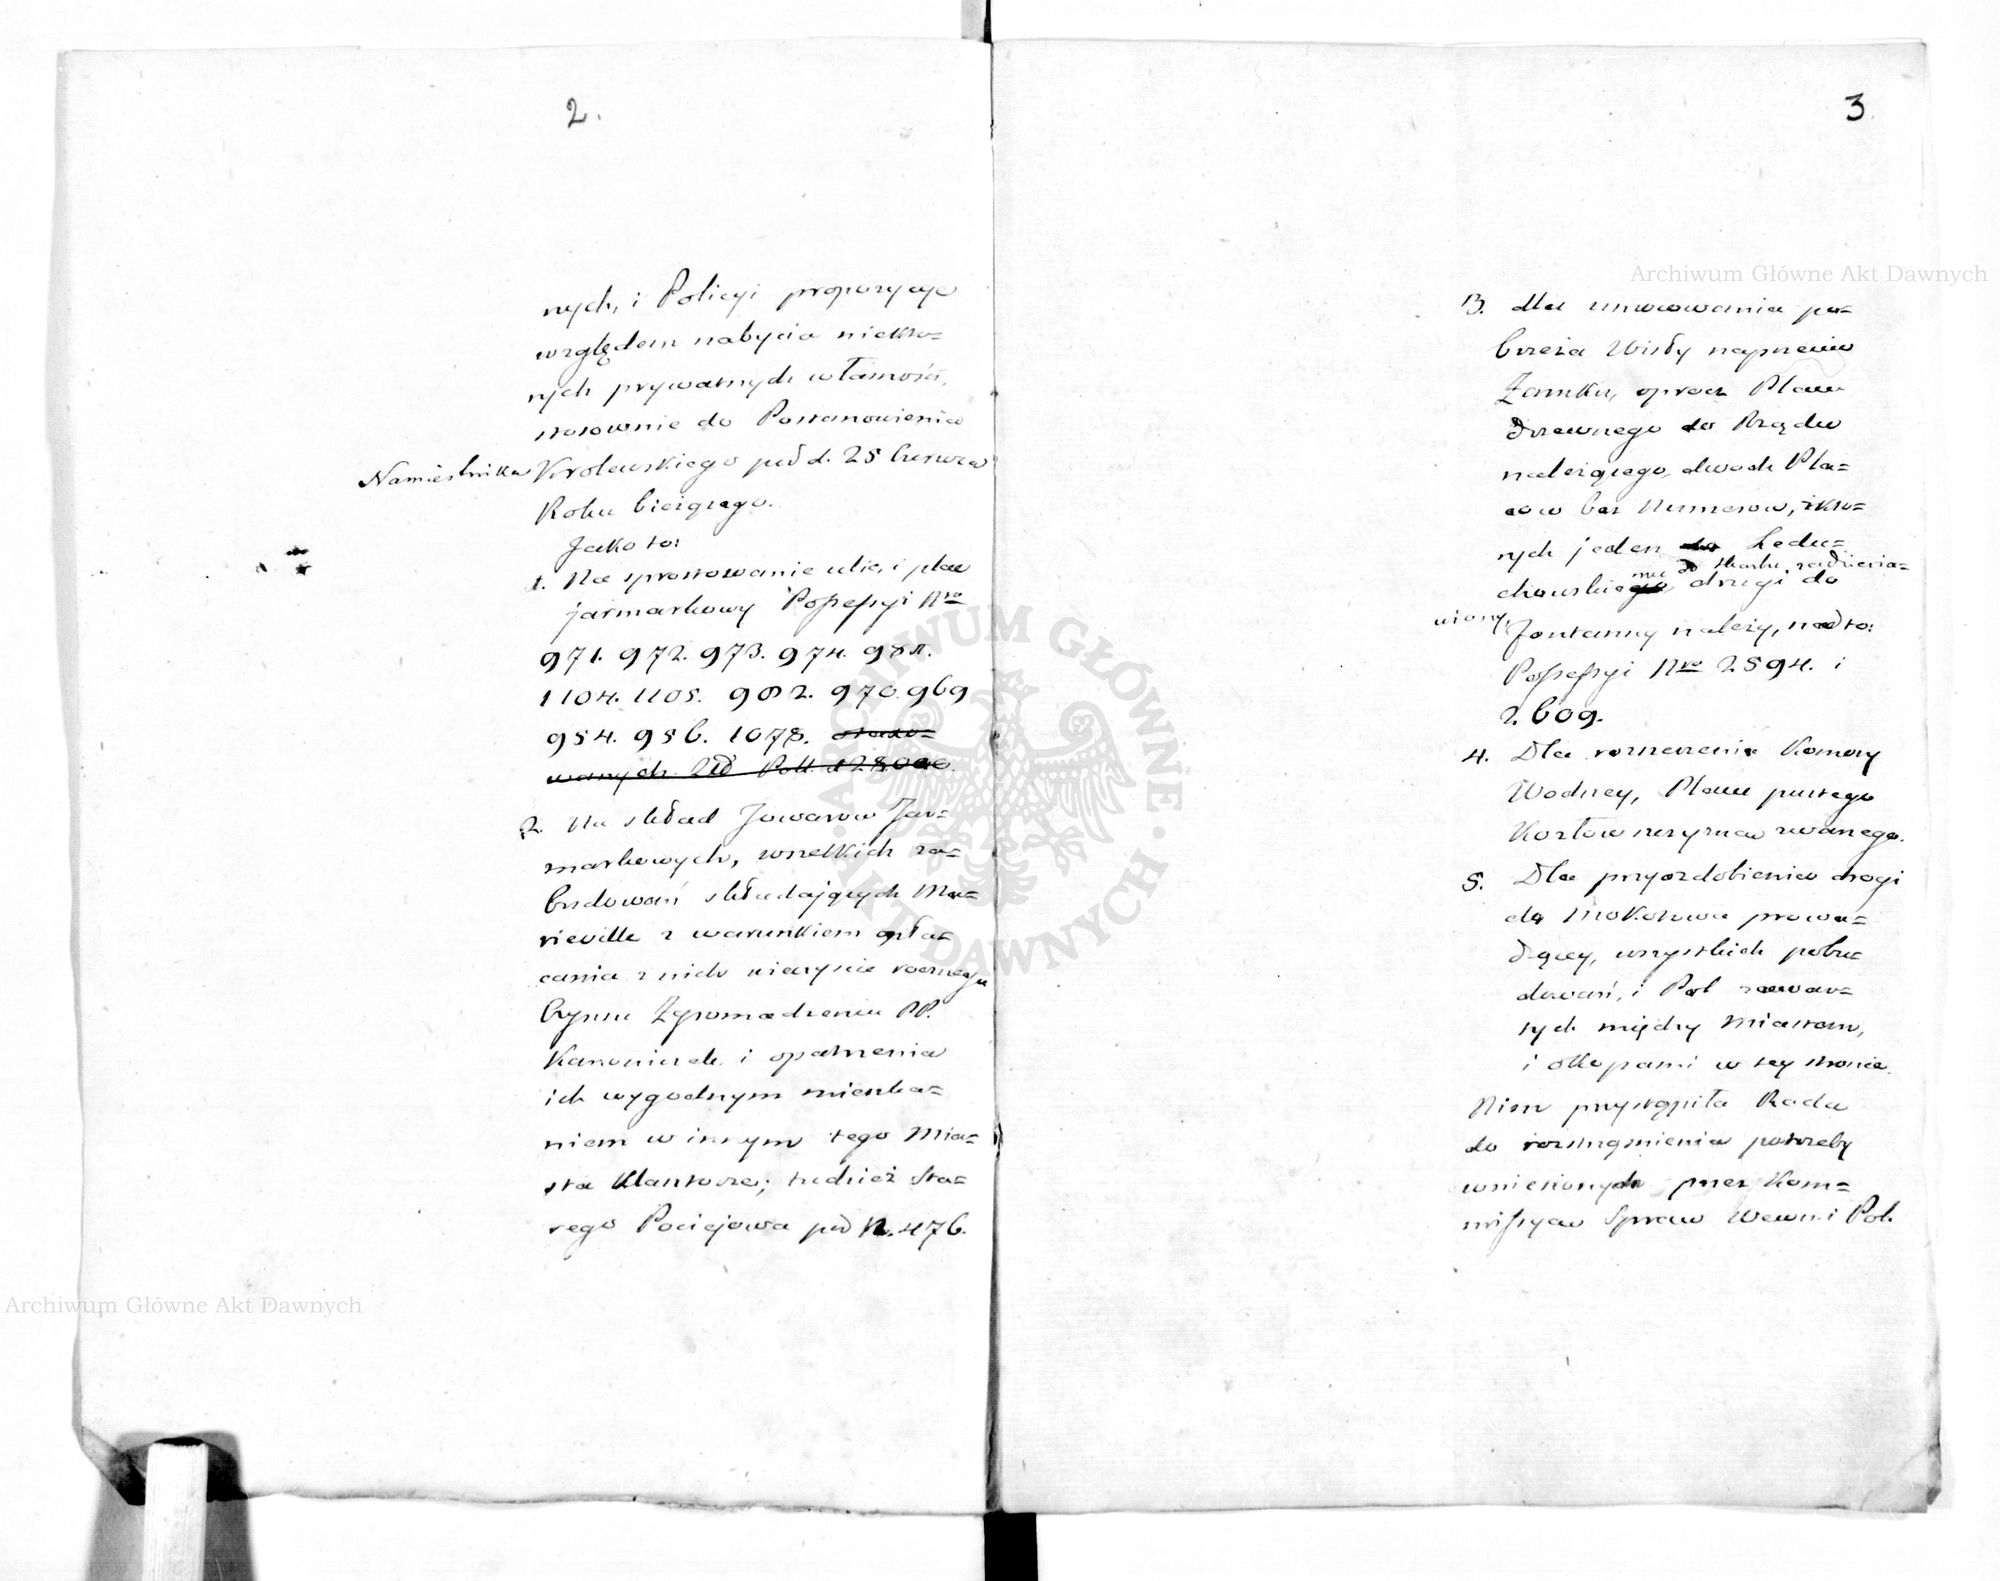 2.
nych, i Policyi propozycye
względem nabycia niektó=
rych prywatnych własności,
stosownie do Postanowienia
Namiestnika Krolewskiego pod d. 25 Czerwca
Roku bieżącego.
Jako to:
1. Na sprostowanie ulic, i plac
jarmarkowy Possessyi Nro
971. 972. 973. 974. 981.
1104. 1105. 982. 970. 969
954. 956. 1078. otaxo=
wanych Złł Poll.
2. Na skład Towarow Jar=
markowych, wszelkich za=
budowań składających Ma=
rieville z warunkiem opła=
cania z nich wieczyście rocznego
Czynszu Zgromadzeniu PP.
Kanoniczek i opatrzenia
ich wygodnym mieszka=
niem w innym tego Mia=
sta Klasztorze; tudzież Sta=
rego Pociejowa pod N. 476.
3
3. dla umocowania po=
brzeża Wisły naprzeciw
Zamku, oprocz Placu
Drzewnego do Rządu
należącego, dwoch Pla=
cow bez Numerow, z kto=
rych jeden Ledu=
mu do Skarbu, zadzierża=
chowskiego drugi do
wiony,
Fontanny należy, nadto:
Possessyi Nro 2594. i
2609.
4. Dla rozszerzenia Komory
Wodney, Placu pustego
zwanego.
5. Dla przyozdobienia drogi
do Mokotowa prowa=
dzącey, wszystkich pobu=
dowań, i Pol zawar=
tych między Miastem,
i okopami w tey stronie.
Nim przystąpiła Rada
do roztrząśnienia potrzeby
wniesionych przez Kom=
missyą Spraw Wewn: i Pol.
Archiwum Główne Akt Dawnych
Archiwum Główne Akt Dawnych
ARCHIWUM GŁÓWNE · AKT DAWNYCH ·